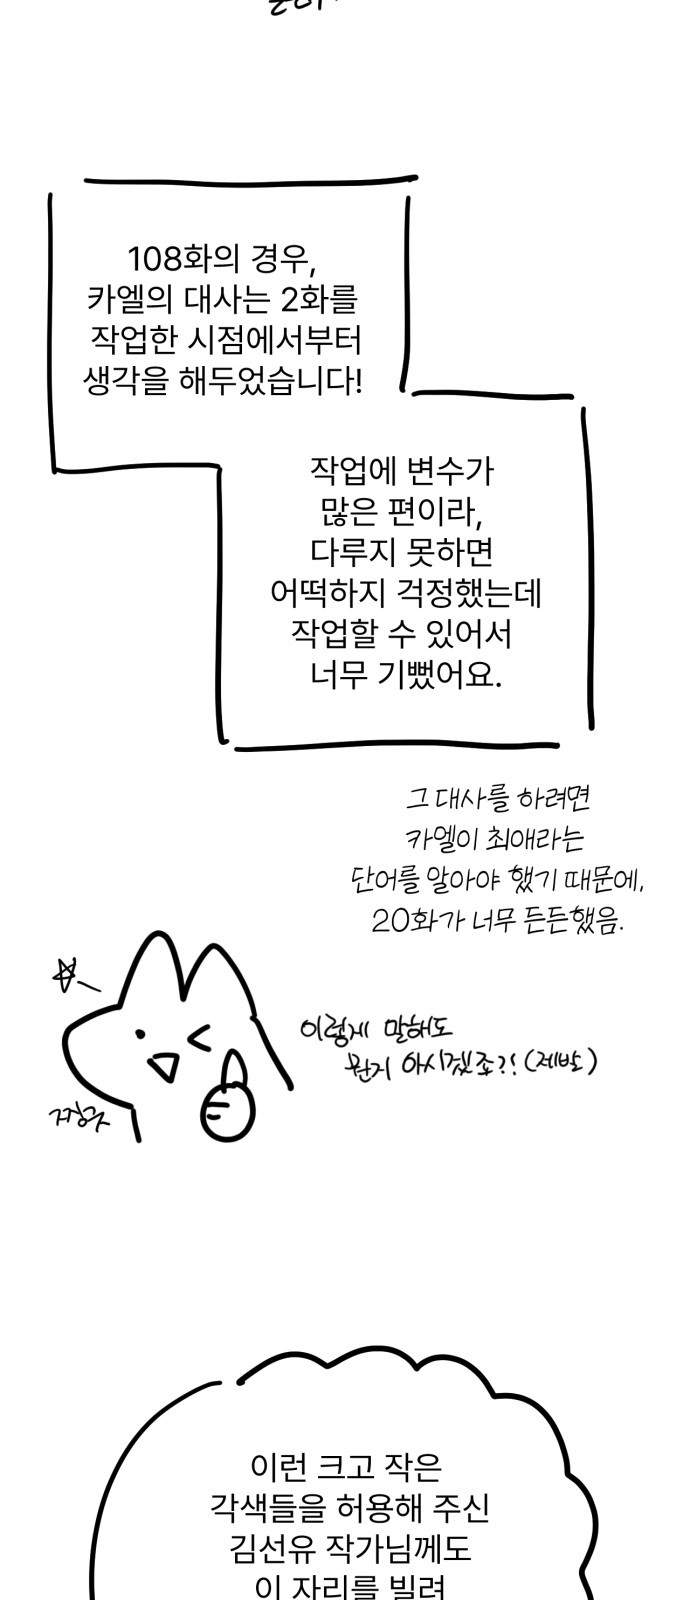 108화의 경우,
카엘의 대사는 2화를
작업한 시점에서부터
생각을 해두었습니다!
작업에 변수가
많은 편이라,
다루지 못하면
어떡하지 걱정했는데
작업할 수 있어서
너무 기뻤어요.
그 대사를 하려면
카엘이 최애라는
단어를 알아야 했기 때문에,
20화가 너무 든든했음.
이렇게 말해도
뭔지 아시겠죠?! (제발)
이런 크고 작은
각색들을 허용해 주신
김선유 작가님께도
이 자리를 빌려